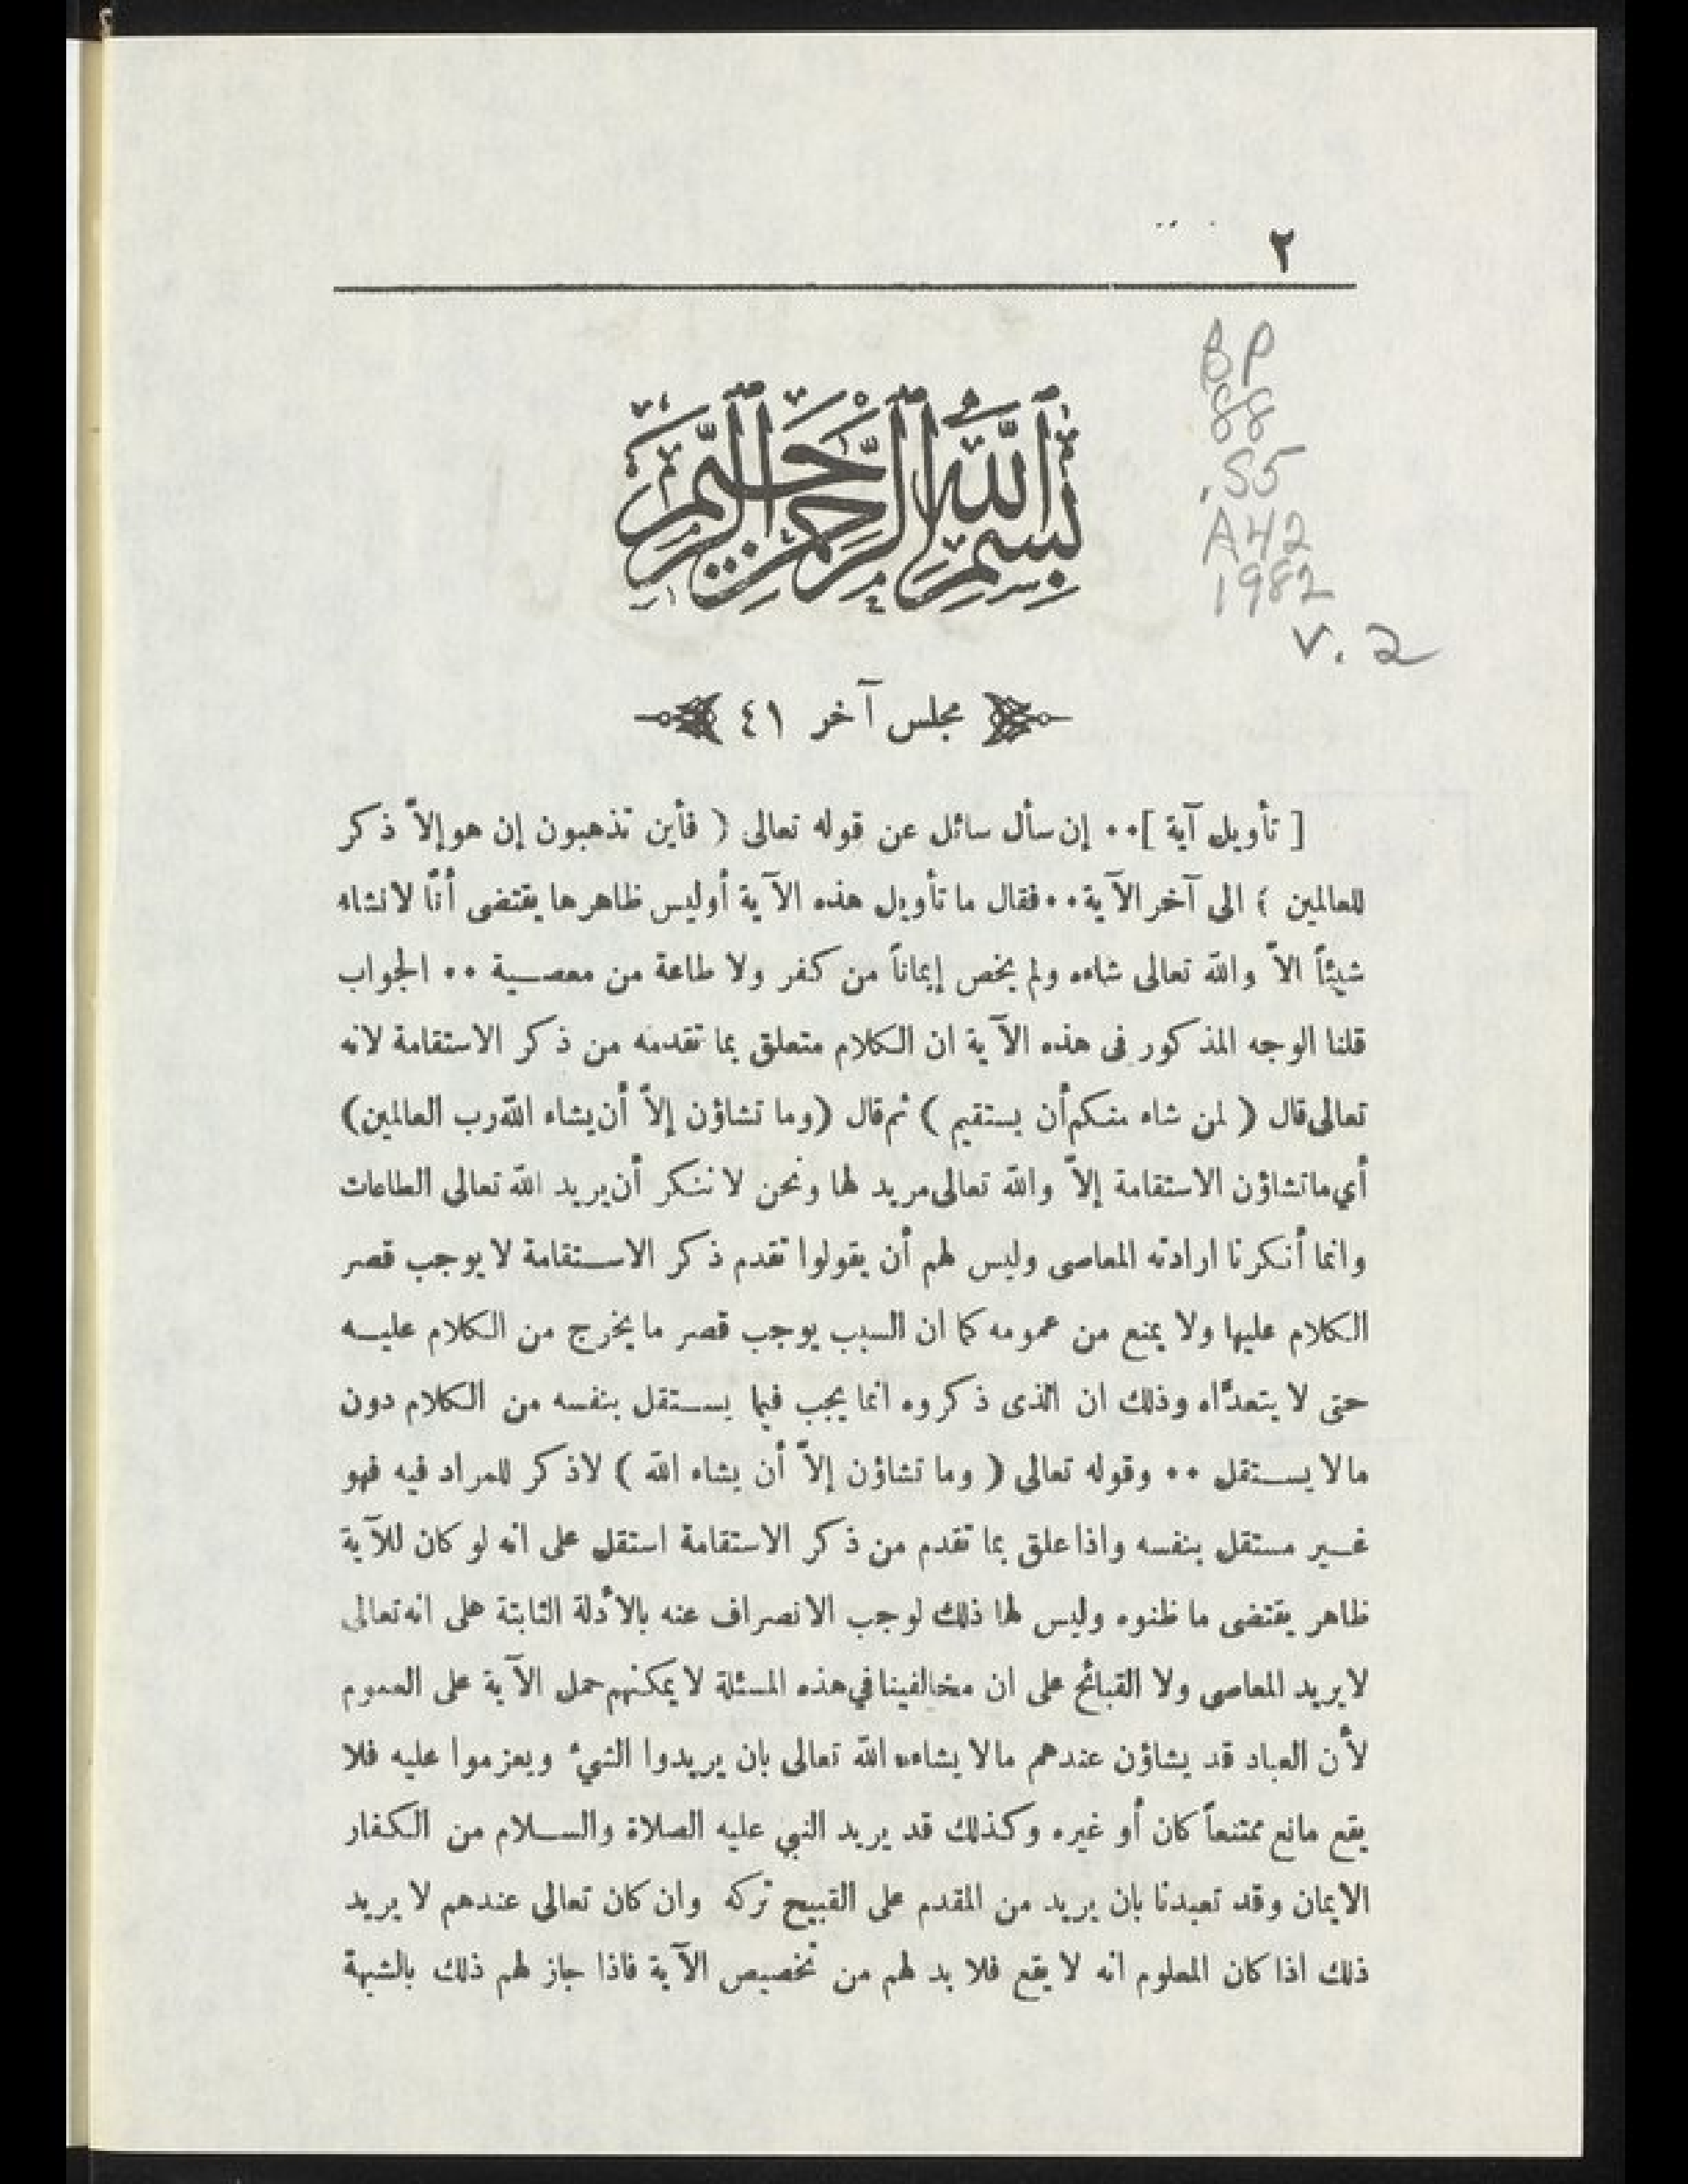 ٢
BP
88
.S5
A42
1982
v. 2
بسم الله الرحمن الرحيم
مجلس آخر ٤١
[ تأويل آية ]٠٠ إن سأل سائل عن قوله تعالى ( فأين تذهبون إن هو إلاّ ذكر
للعالمين ) الى آخر الآية ٠٠ فقال ما تأويل هذه الآية أوليس ظاهرها يقتضى أنّا لانشاء
شيئاً الاّ والله تعالى شاءه ولم يخص إيماناً من كفر ولا طاعة من معصية ٠٠ الجواب
قلنا الوجه المذكور فى هذه الآية ان الكلام متعلق بما تقدمه من ذكر الاستقامة لانه
تعالى قال ( لمن شاء منكم أن يستقيم ) ثم قال (وما تشاؤن إلاّ أن يشاء الله رب العالمين)
أي ماتشاؤن الاستقامة إلاّ والله تعالى مريد لها ونحن لا ننكر أن يريد الله تعالى الطاعات
وانما أنكرنا ارادته المعاصى وليس لهم أن يقولوا تقدم ذكر الاستقامة لا يوجب قصر
الكلام عليها ولا يمنع من عمومه كما ان السبب يوجب قصر ما يخرج من الكلام عليه
حتى لا يتعدّاه وذلك ان الذى ذكروه انما يجب فيما يستقل بنفسه من الكلام دون
مالا يستقل ٠٠ وقوله تعالى ( وما تشاؤن إلاّ أن يشاء الله ) لاذكر للمراد فيه فهو
غير مستقل بنفسه واذا علق بما تقدم من ذكر الاستقامة استقل على انه لو كان للآية
ظاهر يقتضى ما ظنوه وليس لها ذلك لوجب الانصراف عنه بالأدلة الثابتة على انه تعالى
لا يريد المعاصى ولا القبائح على ان مخالفينا في هذه المسئلة لا يمكنهم حمل الآية على العموم
لأن العباد قد يشاؤن عندهم مالا يشاءه الله تعالى بان يريدوا الشيء ويعزموا عليه فلا
يقع مانع ممتنعاً كان أو غيره وكذلك قد يريد النبي عليه الصلاة والسلام من الكفار
الايمان وقد تعبدنا بان يريد من المقدم على القبيح تركه وان كان تعالى عندهم لا يريد
ذلك اذا كان المعلوم انه لا يقع فلا بد لهم من تخصيص الآية فاذا جاز لهم ذلك بالشبهة